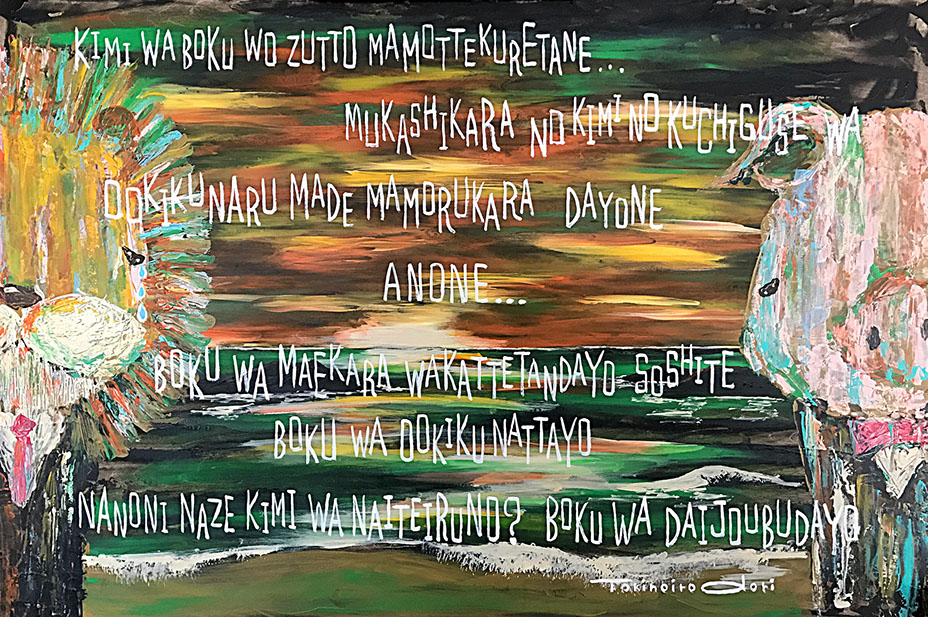 KIMI WA BOKU WO ZUTTO MAMOTTEKURETANE...
MUKASHIKARA NO KIMI NO KUCHIGUSE WA
OOKIKUNARU MADE MAMORUKARA DAYONE
ANONE...
BOKU WA MAEKARA WAKATTETANDAYO SOSHITE
BOKU WA OOKIKU NATTAYO
NANONI NAZE KIMI WA NAITEIRUNO? BOKU WA DAIJOUBUDAYO